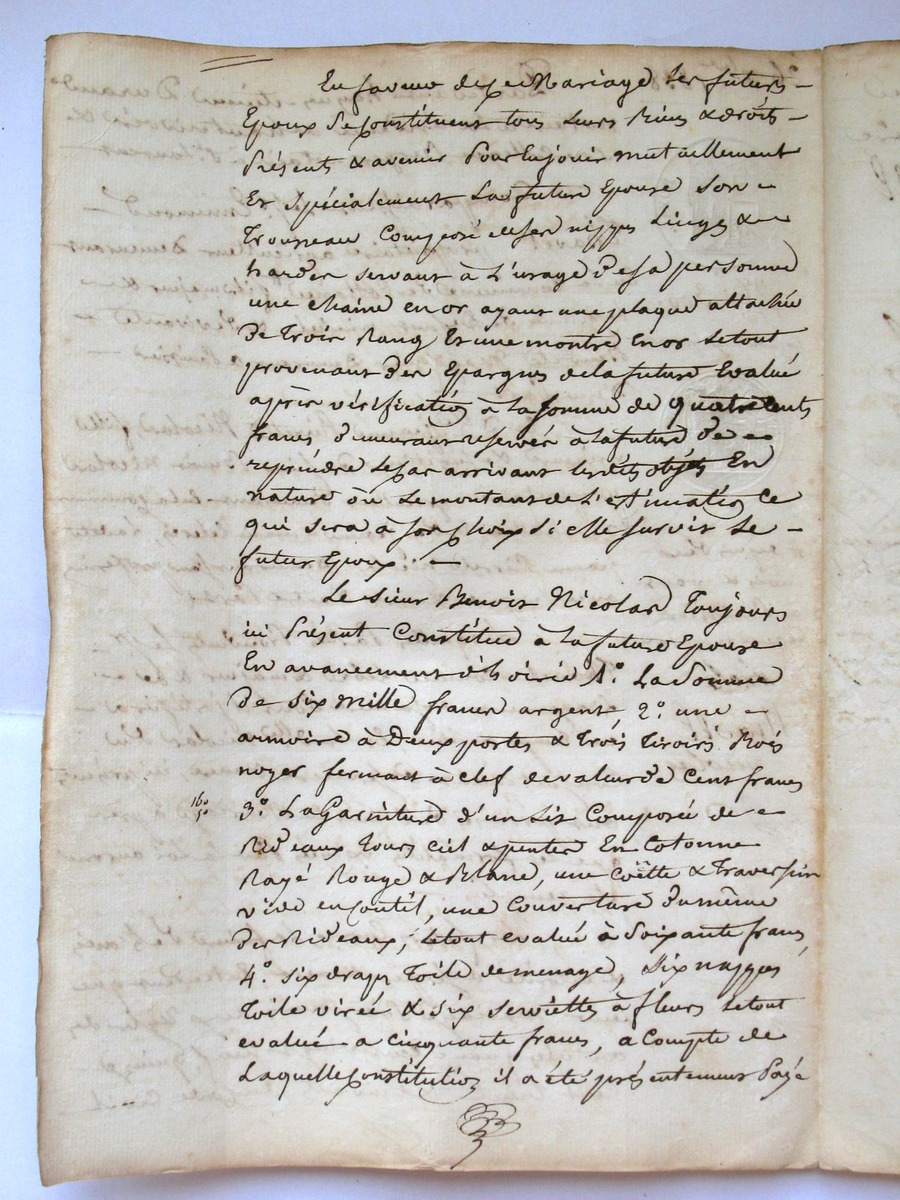 En faveur de ce Mariage les futurs
Epoux se constituent tous leurs Biens & droits
Présents & avenir Pour en jouir mutuellement
Et spécialement La future Epouse son
Trousseau Composé de ses nippes Linges &
hardes servant à L'usage de sa personne
une chaine en or ayant une plaque attachée
de trois Rang Et une montre En or Le tout
provenant des Epargnes de la future Evalué
après vérification à la somme de quatre cents
francs demeurant reservée à la future de
reprendre Le cas arrivant lesdits objets En
nature où Le montant de L'estimation Ce
qui sera à son choix si elle survit Le
futur Epoux.
Le sieur Benoit Nicolas Toujours
ici Présent Constitue à la future Epouse
En avancement d'hoirie 1.° La somme
de six mille francs argent 2.° une
armoire à Deux portes & Trois Tiroirs Bois
noyer fermant à clef de valeur de Cent francs
160
50
3.° La Garniture d'un Lit Composée de
Rideaux Tours ciel & pentes En Cotonne
Rayé Rouge & Blanc, une coëtte & Traversin
vide en coutil, une Couverture du même
des Rideaux, Le tout evalué à Soixante francs,
4.° six draps Toile de menage, six nappes
Toile virée & six serviettes à fleurs Le tout
evalué a cinquante francs, a Compte de
Laquelle constitution il a été présentement Payé